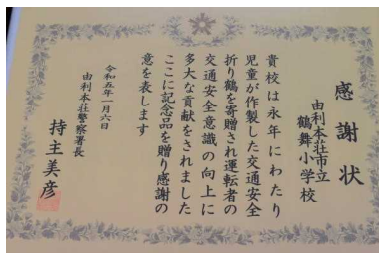 感謝状
由利本荘市立
鶴舞小学校
貴校は永年にわたり
児童が作製した交通安全
折り鶴を寄贈され運転者の
交通安全意識の向上に
多大な貢献をされました
ここに記念品を贈り感謝の
意を表します
令和五年一月六日
由利本荘警察署長
持主美彦